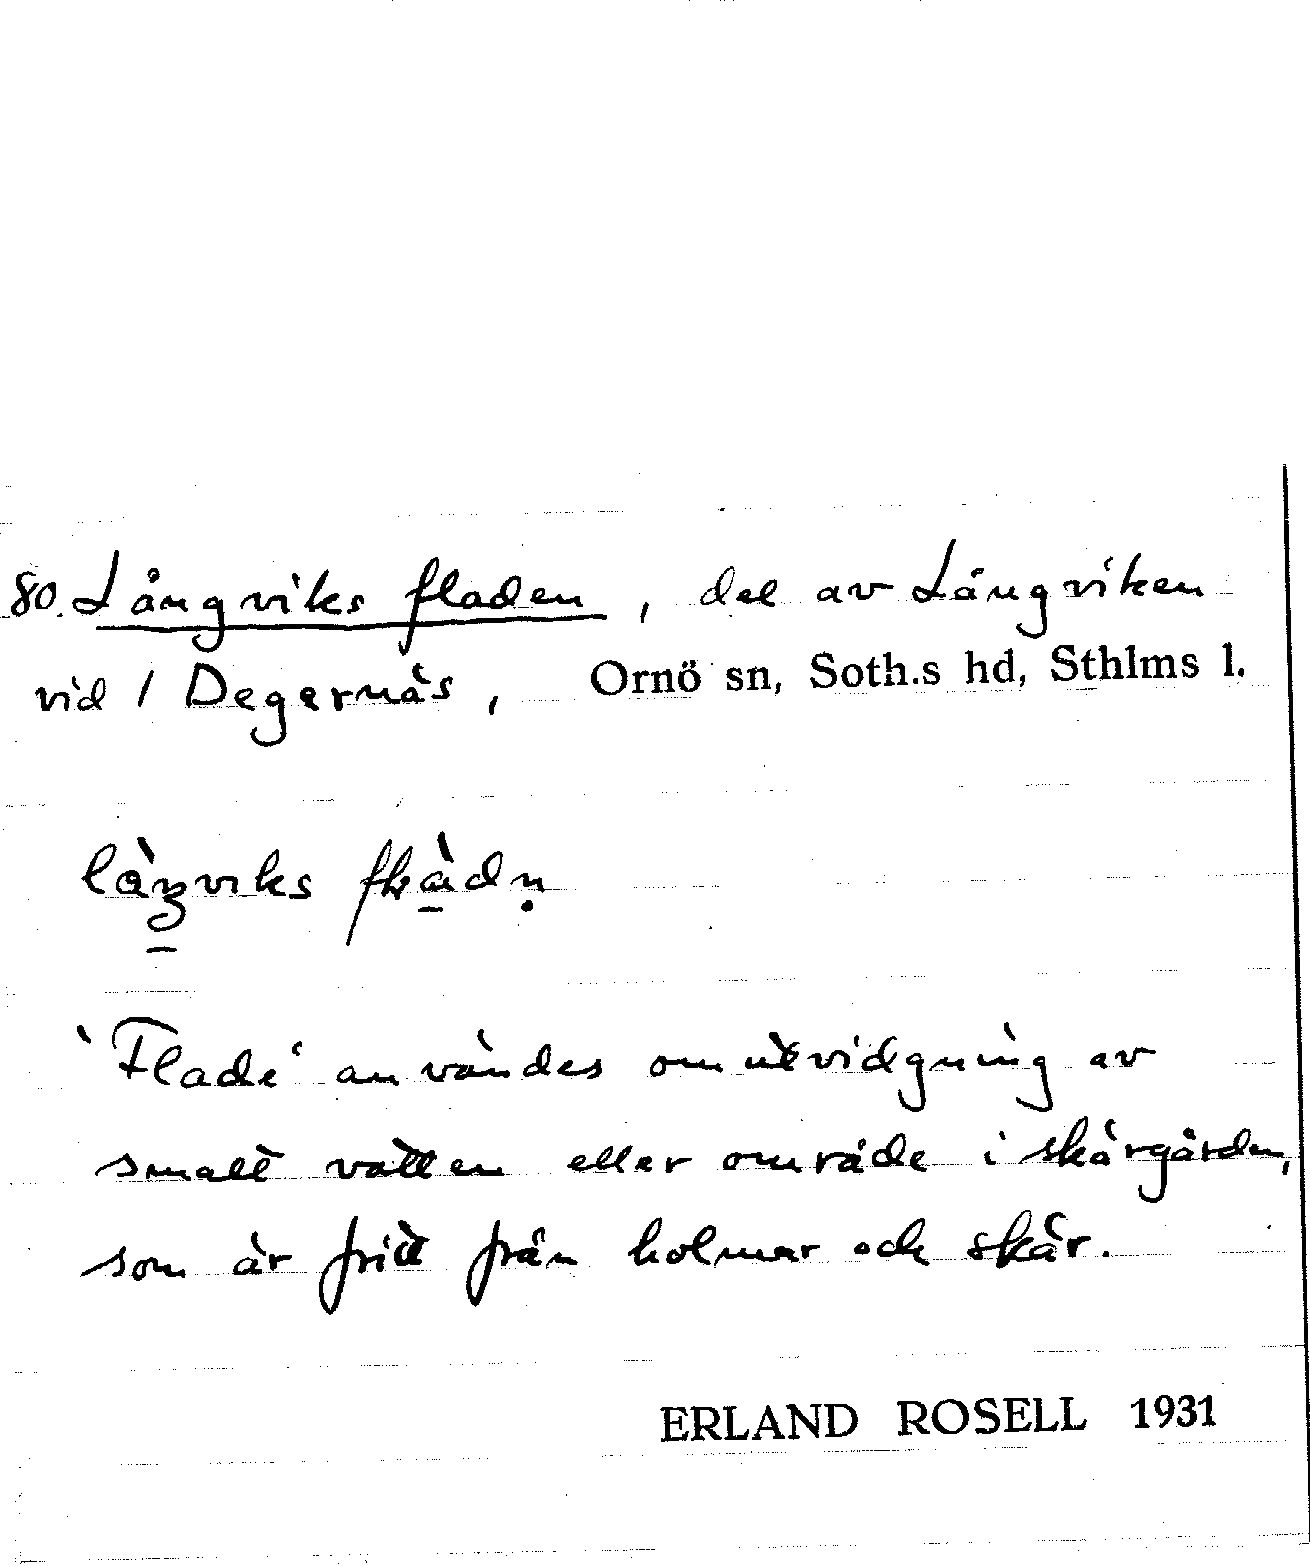 80. Långviks fladen, del av Långviken
vid 1 Degernäs, Ornö sn, Soth.s hd, Sthlms l.
'Flade' användes om utvidgning av
smalt vatten eller område i skärgården,
som är fritt från holmar och skär.
ERLAND ROSELL 1931